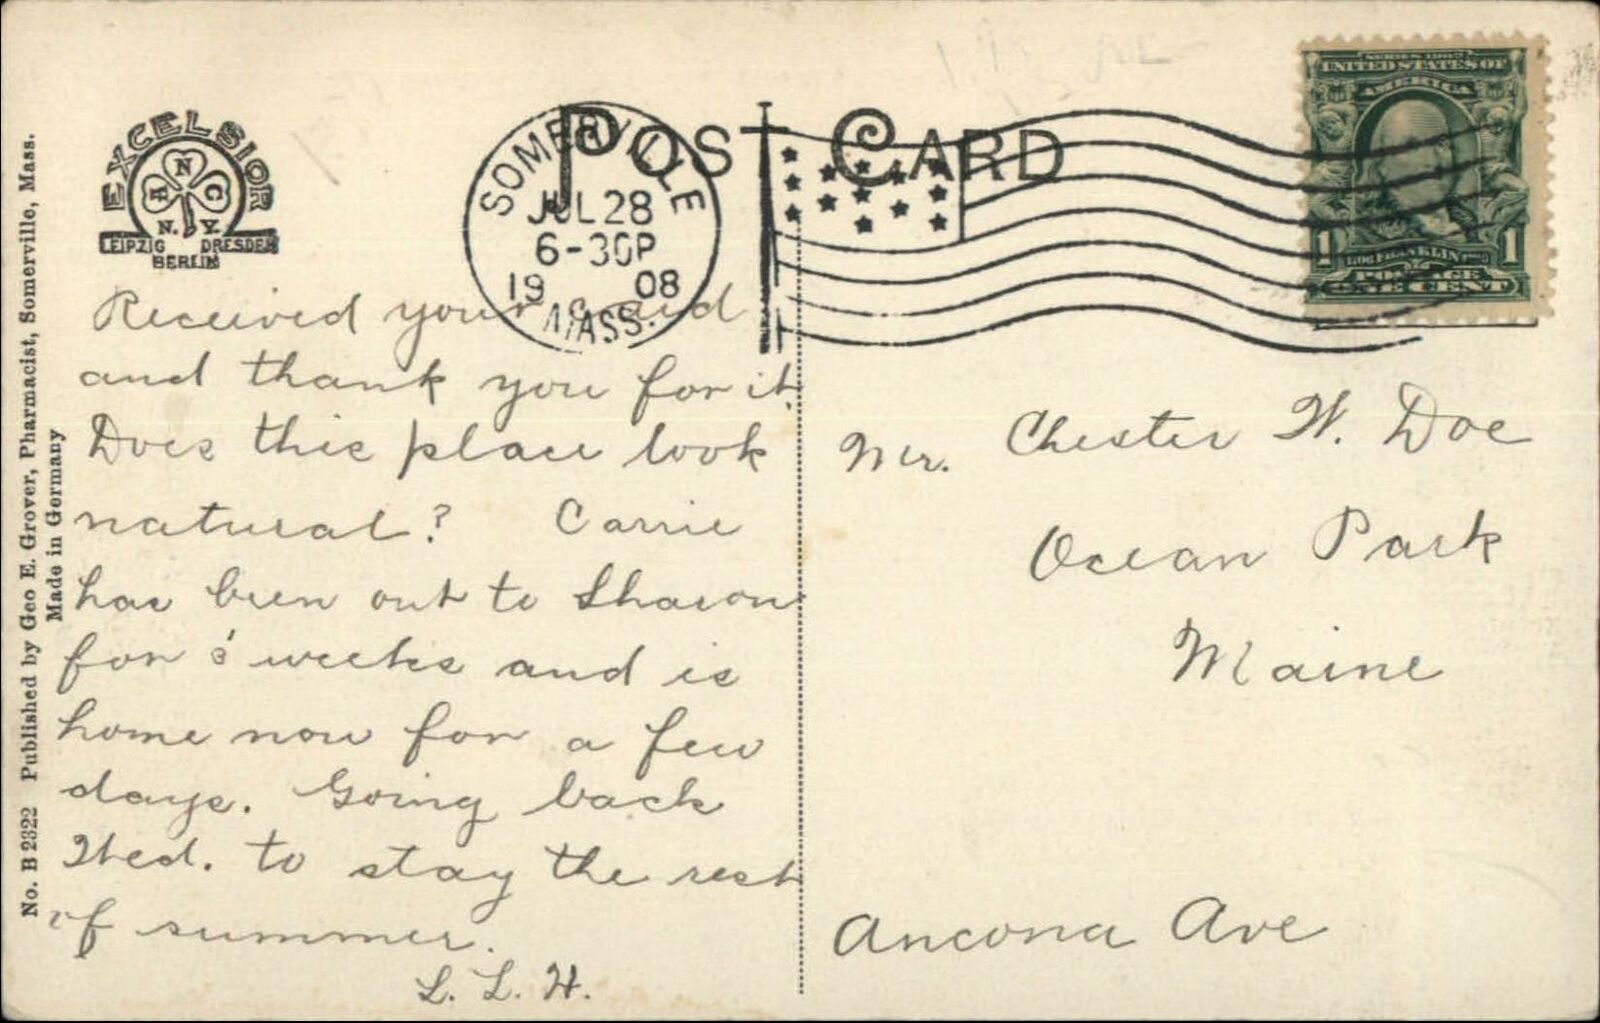 POST CARD
EXCELSIOR
A N C
N. Y.
LEIPZIG DRESDEN
BERLIN
SOMERVILLE
JUL 28
6-30P
1908
MASS.
SERIES 1902
UNITED STATES OF
AMERICA
FRANKLIN
POSTAGE
1 1
ONE CENT
No. B 2322 Published by Geo E. Grover, Pharmacist, Somerville, Mass.
Made in Germany
Received your card
and thank you for it.
Does this place look
natural? Carrie
has been out to Sharon
for 3 weeks and is
home now for a few
days. Going back
Wed. to stay the rest
of summer.
L. L. H.
Mr. Chester W. Doe
Ocean Park
Maine
Ancona Ave